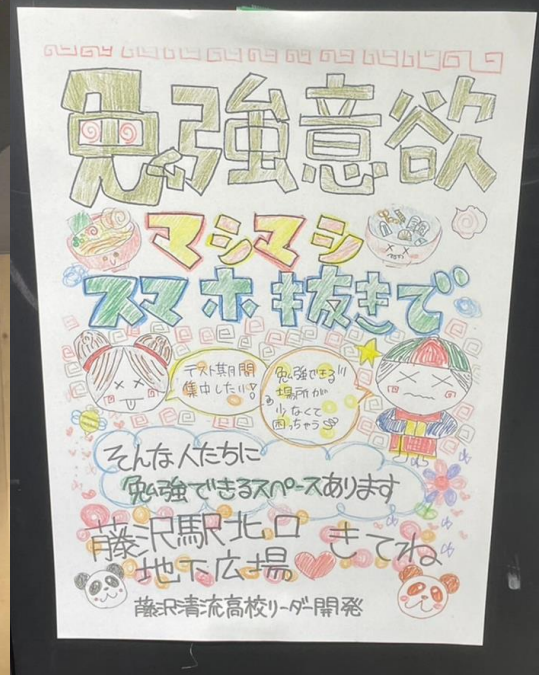 勉強意欲
マシマシ
スマホ抜きで
テスト期間
集中したい!
勉強できる
場所が
少なくて
困っちゃう
そんな人たちに
勉強できるスペースあります
藤沢駅北口
地下広場♥きてね
藤沢清流高校リーダー開発